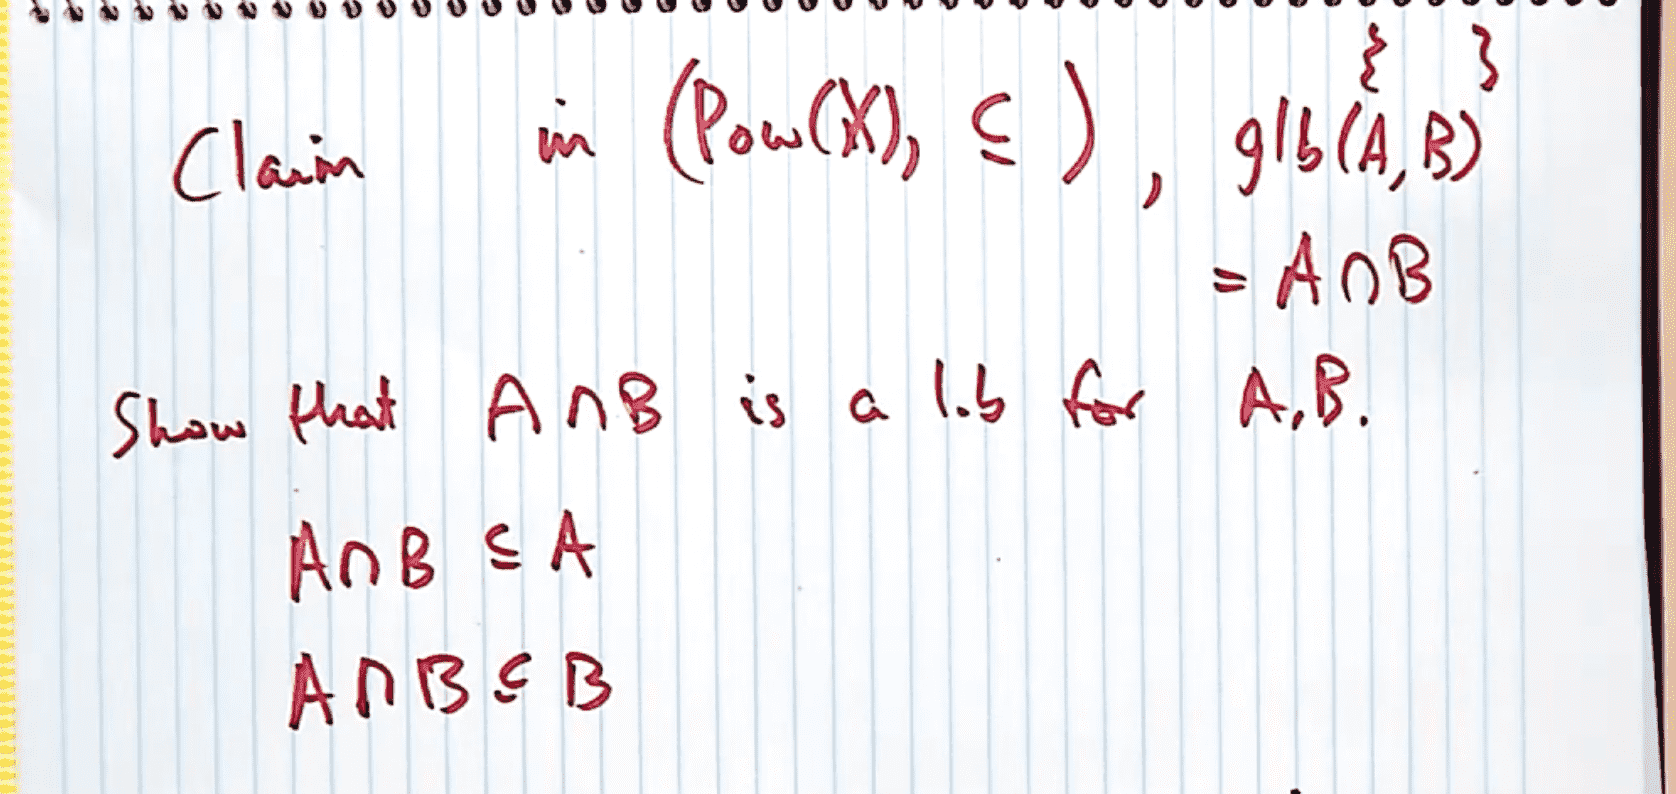 { }
Claim in (Pow(X), ⊆), glb(A, B)
= A∩B
Show that A∩B is a l.b for A, B.
A∩B ⊆ A
A∩B ⊆ B